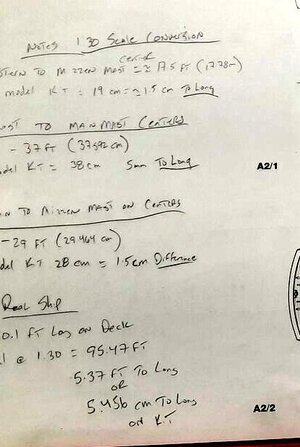 Notes 1:30 Scale Conversion
Center
Stern to Mizzen Mast = ≈ 17.5 FT (17.78cm)
model KT = 19 cm = ≈ 1.5 cm To Long
to Manmast Centers
- 37 FT (37.592 cm)
KT = 38 cm 5mm To Long
A2/1
to Mizzen Mast on Centers
- 29 FT (29.464 cm)
KT 28 cm = 1.5cm Difference
Real Ship
0.1 FT Long on Deck
@ 1:30 = 95.47 FT
5.37 FT To Long
OR
5.456 cm To Long
on KT
A2/2